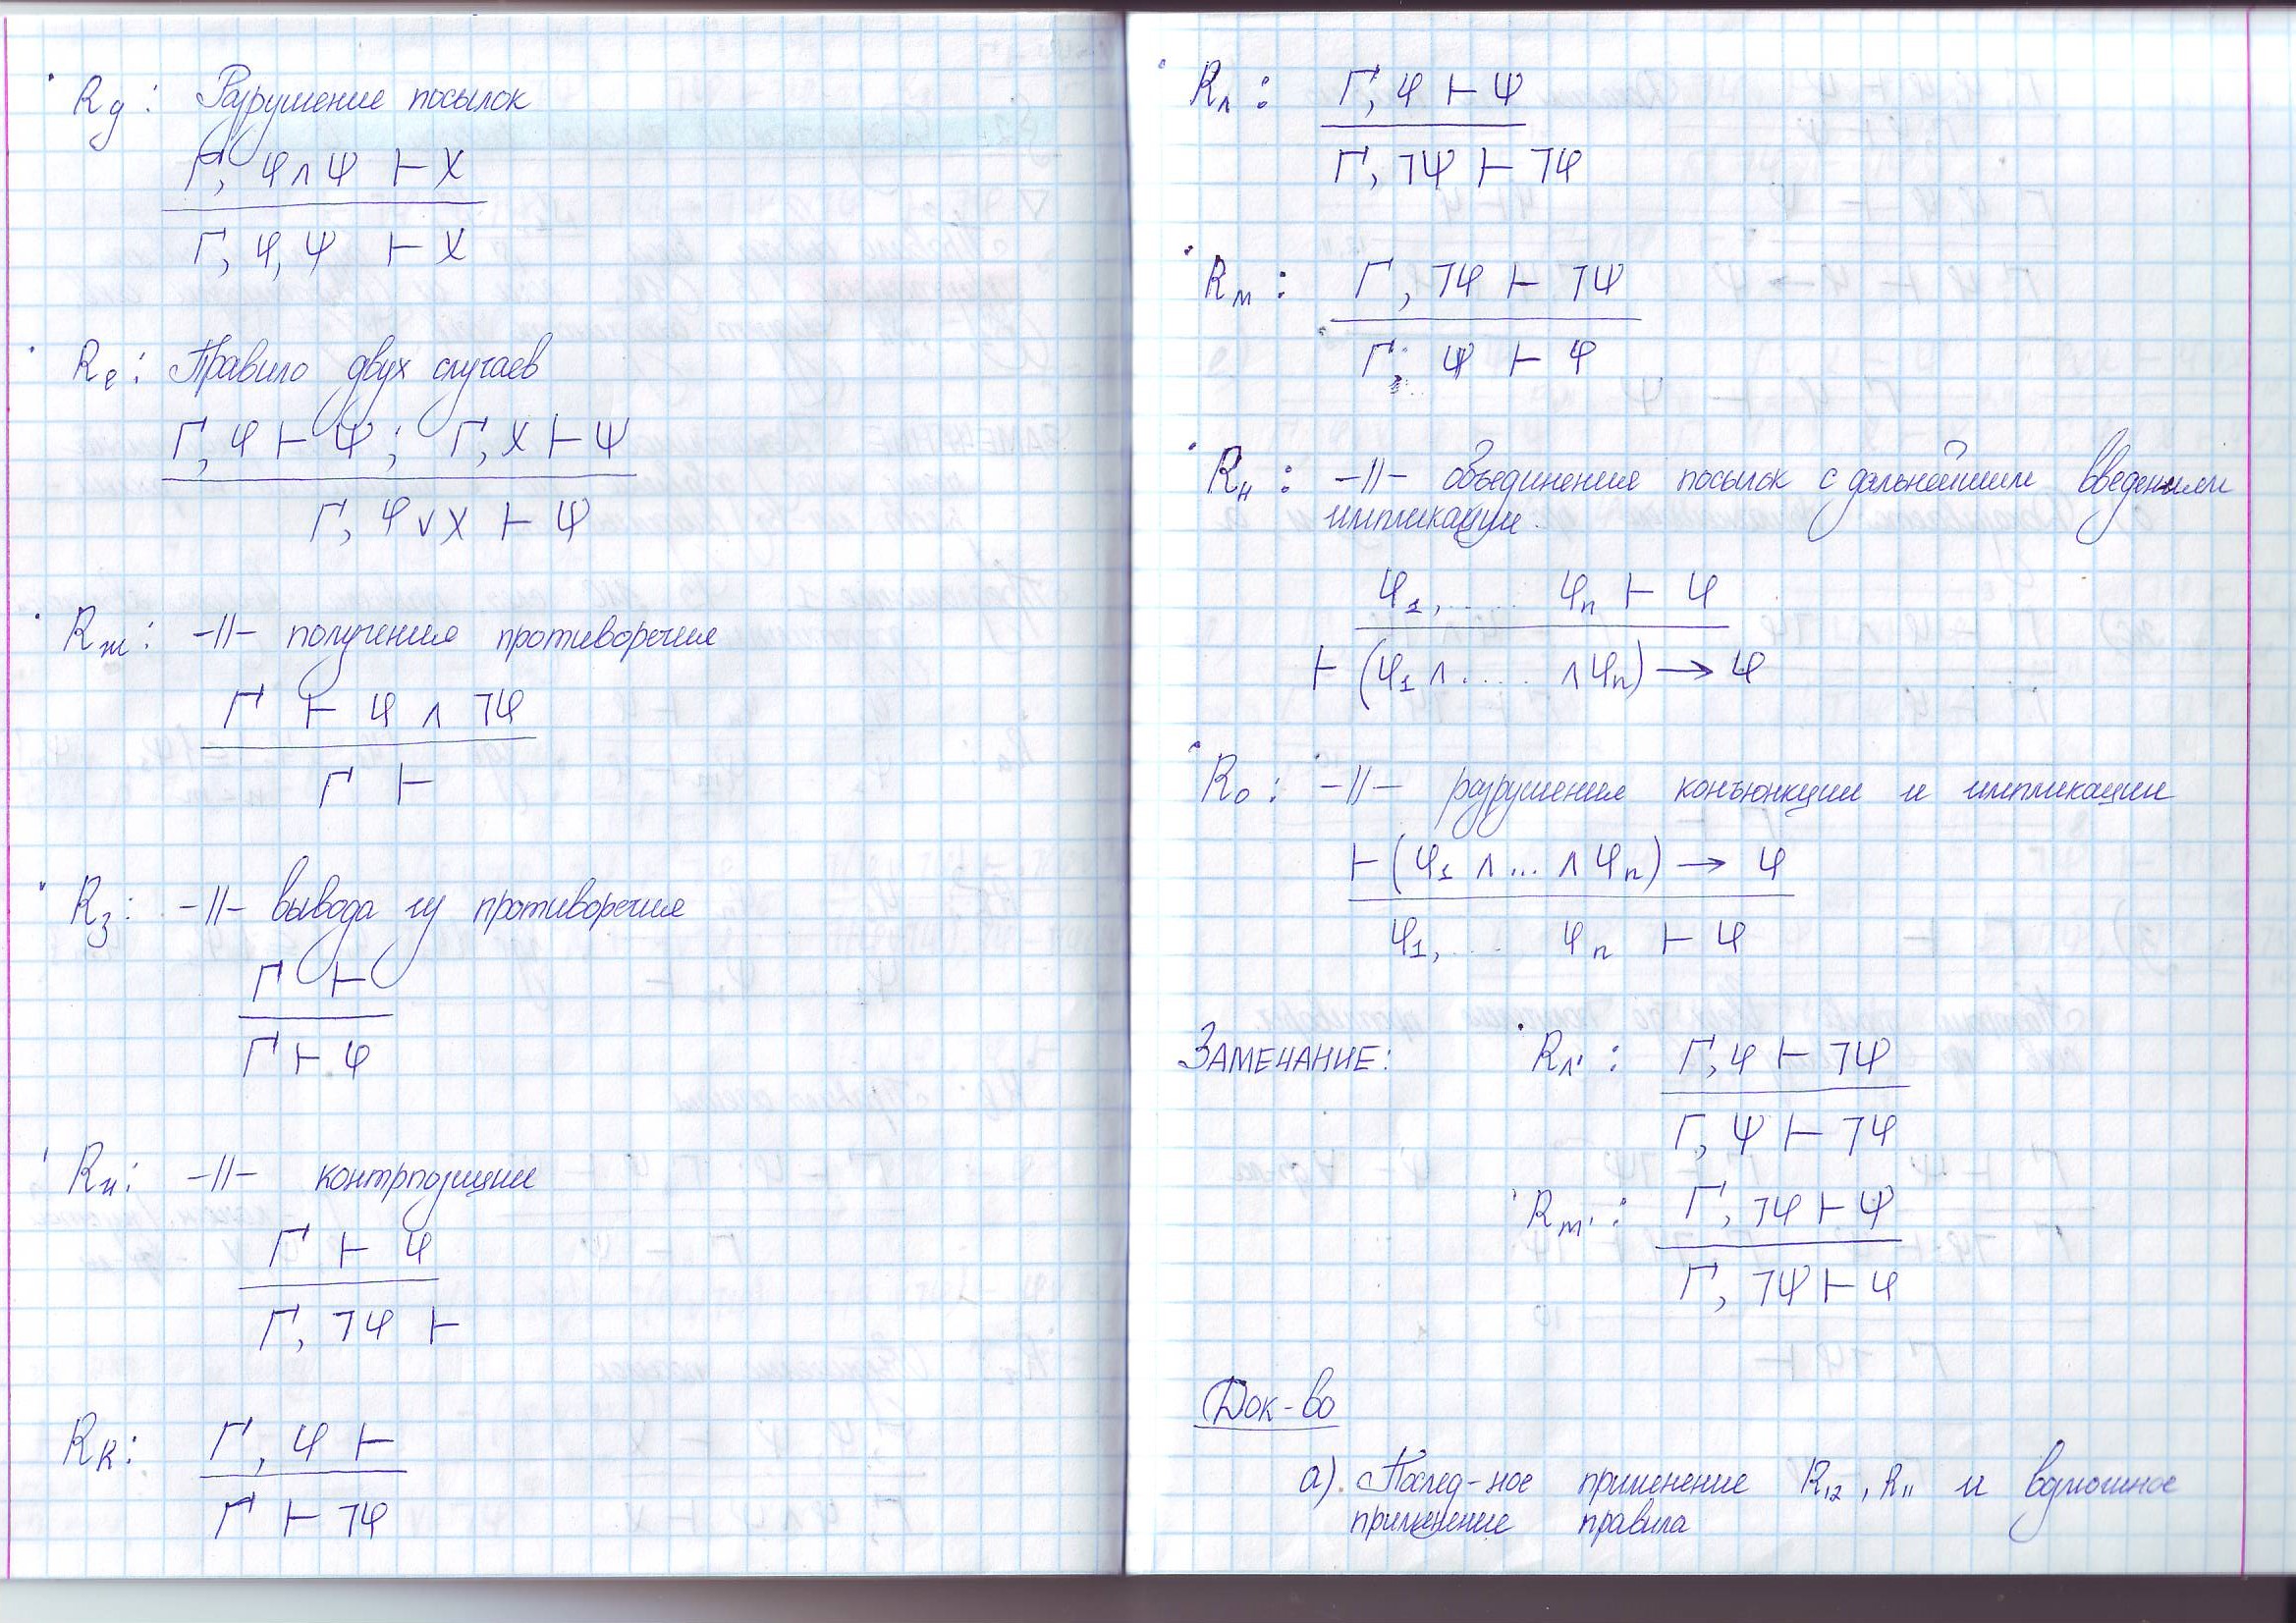 R_д: Разрушение посылок
Γ, φ∧ψ ⊢ χ
Γ, φ, ψ ⊢ χ
R_е: Правило двух случаев
Γ, φ ⊢ ψ; Γ, χ ⊢ ψ
Γ, φ∨χ ⊢ ψ
R_ж: -||- получения противоречия
Γ ⊢ φ ∧ ¬φ
Γ ⊢
R_з: -||- вывода из противоречия
Γ ⊢
Γ ⊢ φ
R_и: -||- контрпозиции
Γ ⊢ φ
Γ, ¬φ ⊢
R_к:
Γ, φ ⊢
Γ ⊢ ¬φ
R_л: Γ, φ ⊢ ψ
Γ, ¬ψ ⊢ ¬φ
R_м: Γ, ¬φ ⊢ ¬ψ
Γ, ψ ⊢ φ
R_н: -||- объединения посылок с дальнейшим введением
импликации.
φ₁, .... φₙ ⊢ φ
⊢ (φ₁ ∧ .... ∧ φₙ) → φ
R_о: -||- разрушения конъюнкции и импликации
⊢ (φ₁ ∧ ... ∧ φₙ) → φ
φ₁, ... φₙ ⊢ φ
ЗАМЕЧАНИЕ: R_л': Γ, φ ⊢ ¬ψ
Γ, ψ ⊢ ¬φ
R_м': Γ, ¬φ ⊢ ψ
Γ, ¬ψ ⊢ φ
Док-во
а). Послед-ное применение R₁₂, R₁₁ и
применение правила